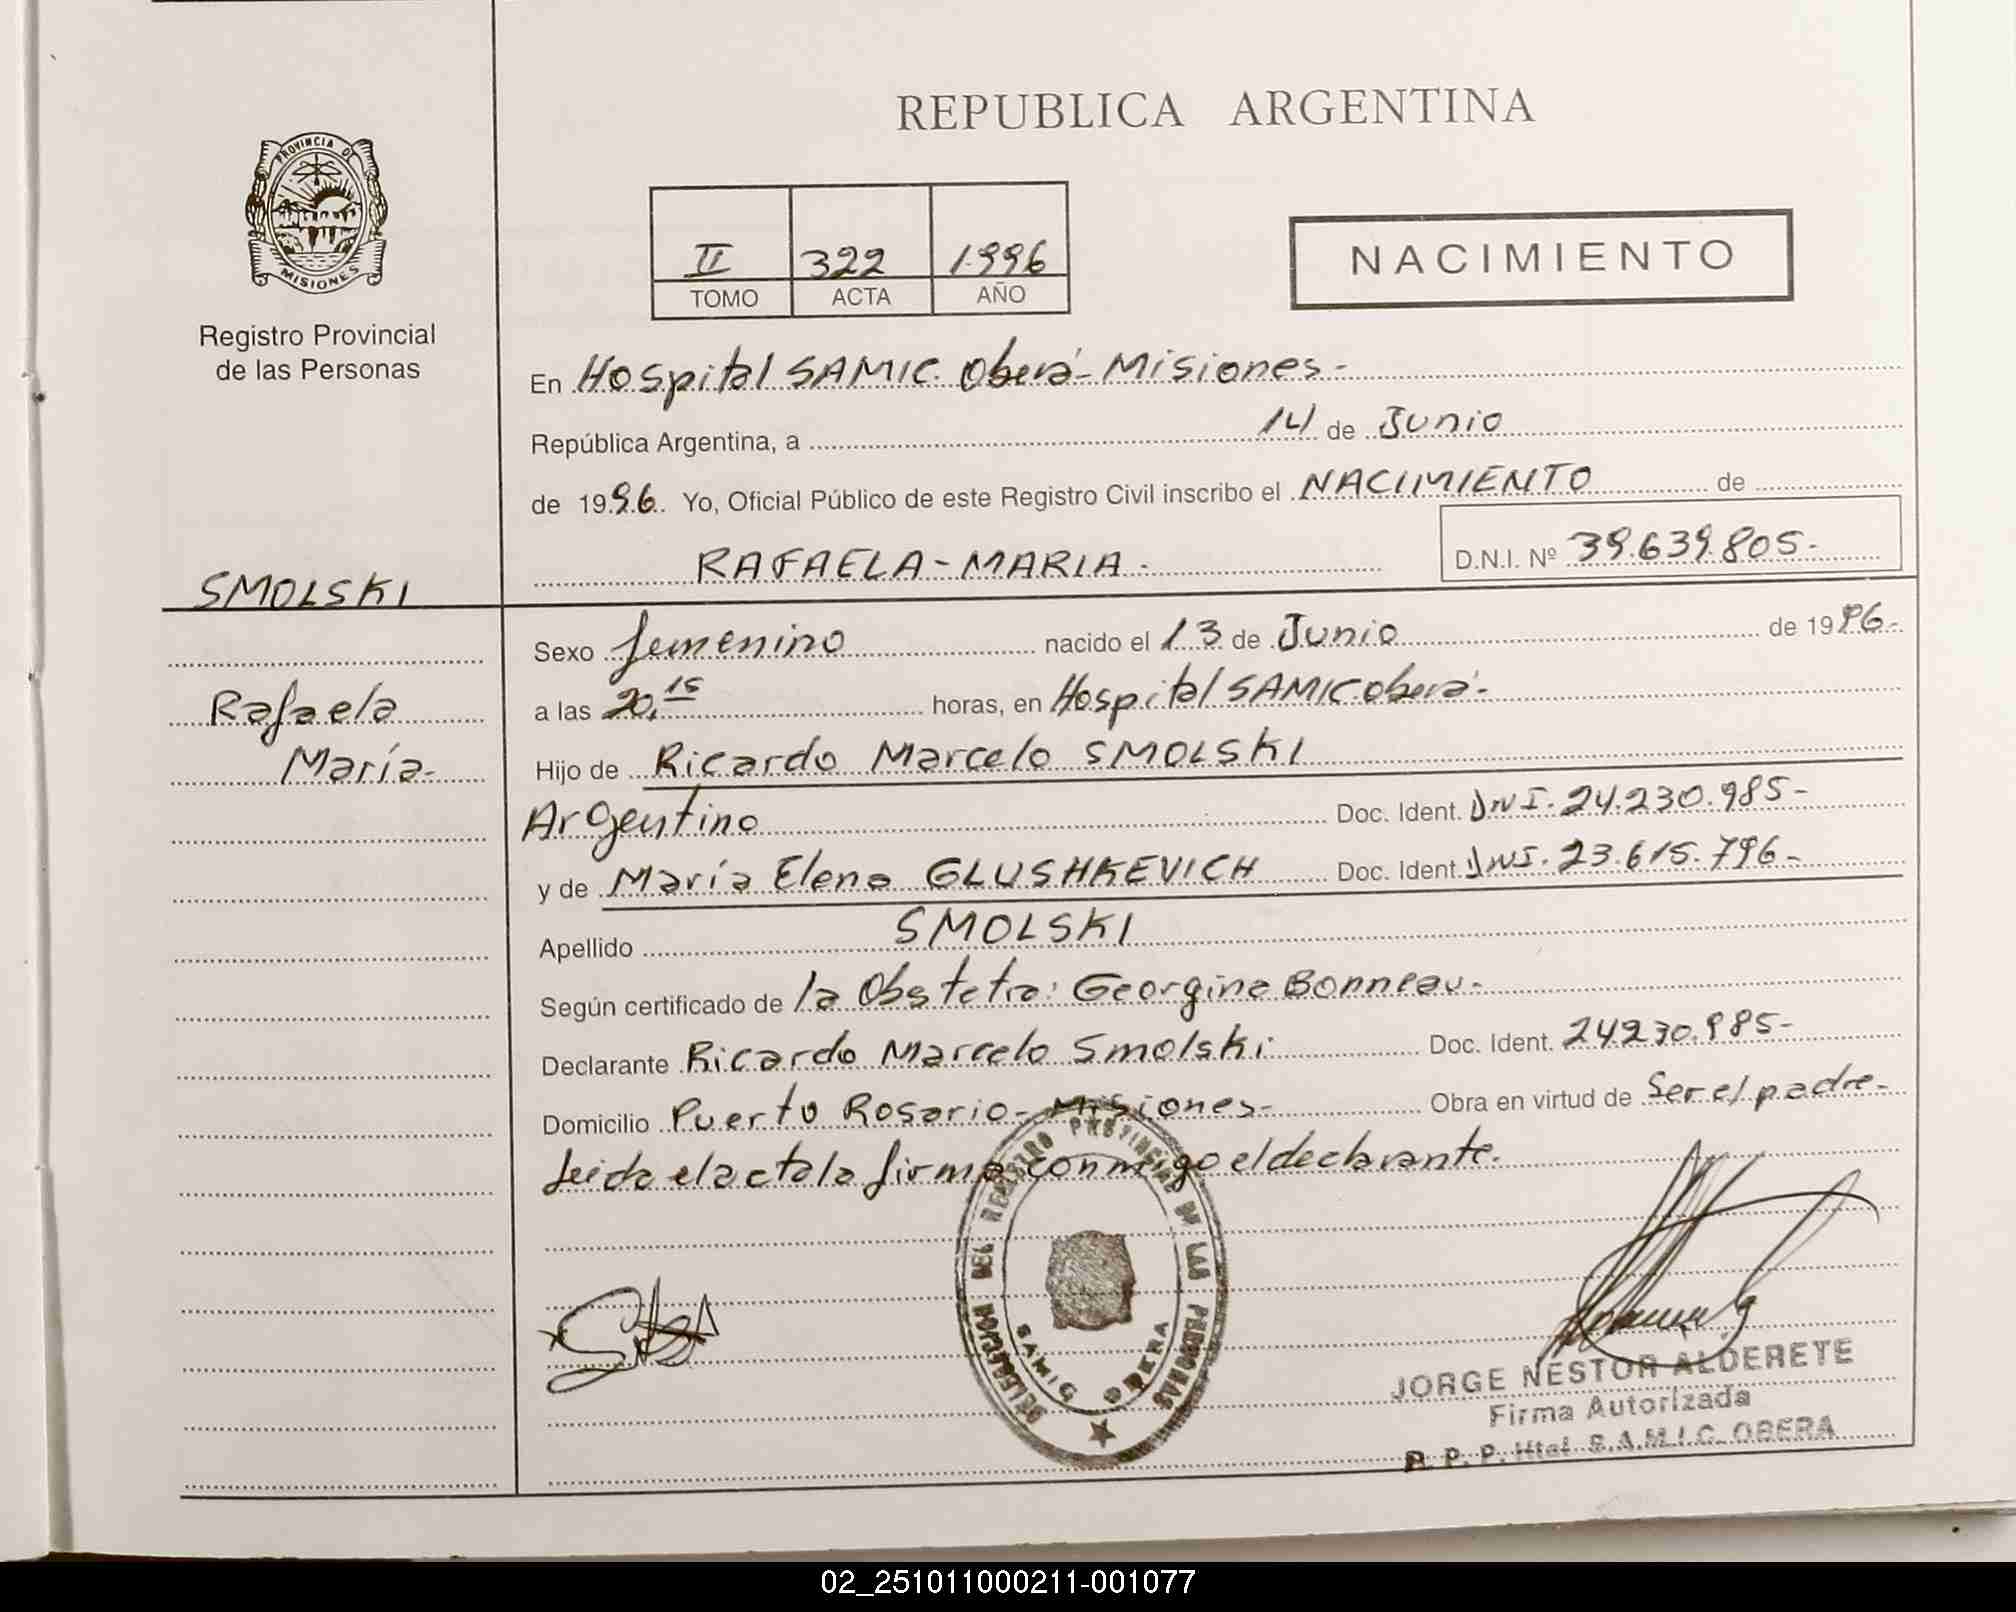 REPUBLICA ARGENTINA
PROVINCIA DE
MISIONES
Registro Provincial
de las Personas
II 322 1996
TOMO ACTA AÑO
NACIMIENTO
En Hospital SAMIC. Oberá - Misiones -
República Argentina, a 14 de Junio
de 1996. Yo, Oficial Público de este Registro Civil inscribo el NACIMIENTO de
RAFAELA - MARIA -
D.N.I. Nº 39.639.805-
SMOLSKI
Rafaela
María-
Sexo femenino nacido el 13 de Junio de 1996-
a las 20,15 horas, en Hospital SAMIC Oberá-
Hijo de Ricardo Marcelo SMOLSKI
Argentino Doc. Ident. DNI. 24.230.985-
y de María Elena GLUSHKEVICH Doc. Ident. DNI. 23.615.796-
Apellido SMOLSKI
Según certificado de la Obstetra: Georgina Bonneau-
Declarante Ricardo Marcelo Smolski Doc. Ident. 24230.985-
Domicilio Puerto Rosario- Misiones- Obra en virtud de Ser el padre-
Leida el acta la firma conmigo el declarante.
DELEGACION DEL REGISTRO PROVINCIAL DE LAS PERSONAS
SAMIC OBERA
JORGE NESTOR ALDERETE
Firma Autorizada
R. P. P. Htal. S.A.M.I.C. OBERA
02_251011000211-001077